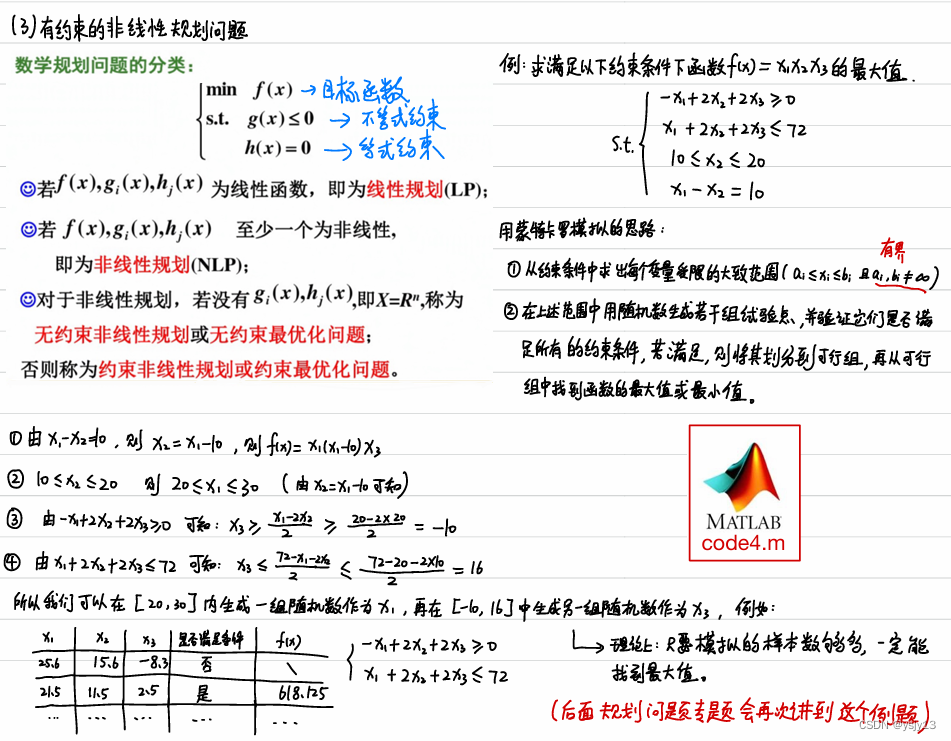 (3)有约束的非线性规划问题
数学规划问题的分类:
min f(x) → 目标函数
s.t. g(x)≤0 → 不等式约束
h(x)=0 → 等式约束
☺若f(x),g_i(x),h_j(x) 为线性函数，即为线性规划(LP);
☺若 f(x),g_i(x),h_j(x) 至少一个为非线性,
即为非线性规划(NLP);
☺对于非线性规划，若没有g_i(x),h_j(x),即X=Rⁿ,称为
无约束非线性规划或无约束最优化问题;
否则称为约束非线性规划或约束最优化问题。
例:求满足以下约束条件下函数f(x)=x₁x₂x₃的最大值.
s.t.
-x₁+2x₂+2x₃≥0
x₁+2x₂+2x₃≤72
10≤x₂≤20
x₁-x₂=10
用蒙特卡罗模拟的思路:
有界
①从约束条件中求出每个变量受限的大致范围(a_i≤x_i≤b_i 且a_i,b_i≠∞)
②在上述范围中用随机数生成若干组试验点,并验证它们是否满
足所有的约束条件,若满足,则将其划分到可行组,再从可行
组中找到函数的最大值或最小值。
①由x₁-x₂=10,则 x₂=x₁-10,则f(x)=x₁(x₁-10)x₃
②10≤x₂≤20 则 20≤x₁≤30 (由x₂=x₁-10可知)
③ 由-x₁+2x₂+2x₃≥0 可知: x₃≥(x₁-2x₂)/2≥(20-2×20)/2=-10
④ 由x₁+2x₂+2x₃≤72 可知: x₃≤(72-x₁-2x₂)/2≤(72-20-2×10)/2=16
MATLAB
code4.m
所以我们可以在[20,30]内生成一组随机数作为x₁,再在[-10,16]中生成另一组随机数作为x₃,例如:
x₁ x₂ x₃ 是否满足条件 f(x)
25.6 15.6 -8.3 否 \
21.5 11.5 2.5 是 618.125
... ... ... ... ...
-x₁+2x₂+2x₃≥0
x₁+2x₂+2x₃≤72
→理论上:只要模拟的样本数够多,一定能
找到最大值。
(后面规划问题专题会再次讲到这个例题)
CSDN @ysjy13